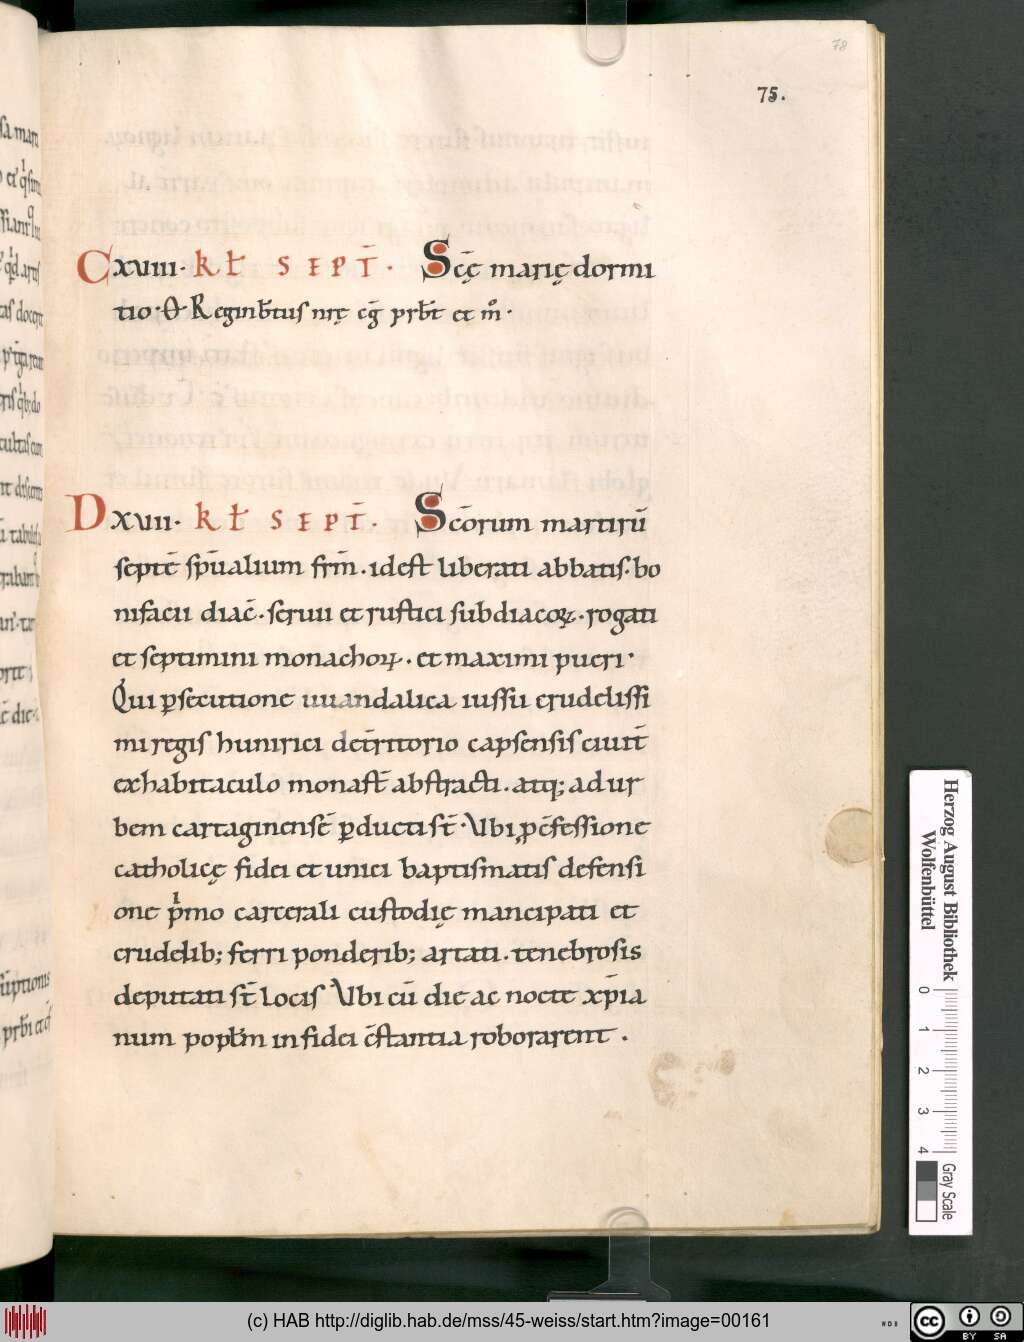 78
75.
C xviiii· kł SEPT̄· Sc̄ę marię dormi
tio· O Reginb̄tus nr̄ę cḡ prb̄r et m̊·
D xviii· kł SEPT̄· Sc̄orum martirū
septē sp̄ualium fr̄m̄. id est liberati abbatis· bo
nifacii diac̄· serui et rustici subdiacoꝝ· rogati
et septimini monachoꝝ· et maximi pueri·
Qui ꝑsecutione uuandalica iussu crudelissi
mi regis hunirici det̄ritorio capsensis ciuit̄
ex habitaculo monast̄ abstracti. atq; ad ur
bem cartaginensē ꝑducti st̄· Ubi ꝓ c̄fessione
catholicę fidei et unici baptismatis defensi
one p̍mo carcerali custodię mancipati et
crudelib; ferri ponderib; artati. tenebrosis
deputati st̄ locis Ubi cū die ac nocte xp̄ia
num popłm in fidei c̄stantia roborarent.
Herzog August Bibliothek
Wolfenbüttel
0 1 2 3 4
Gray Scale
(c) HAB http://diglib.hab.de/mss/45-weiss/start.htm?image=00161
WDB
cc BY SA